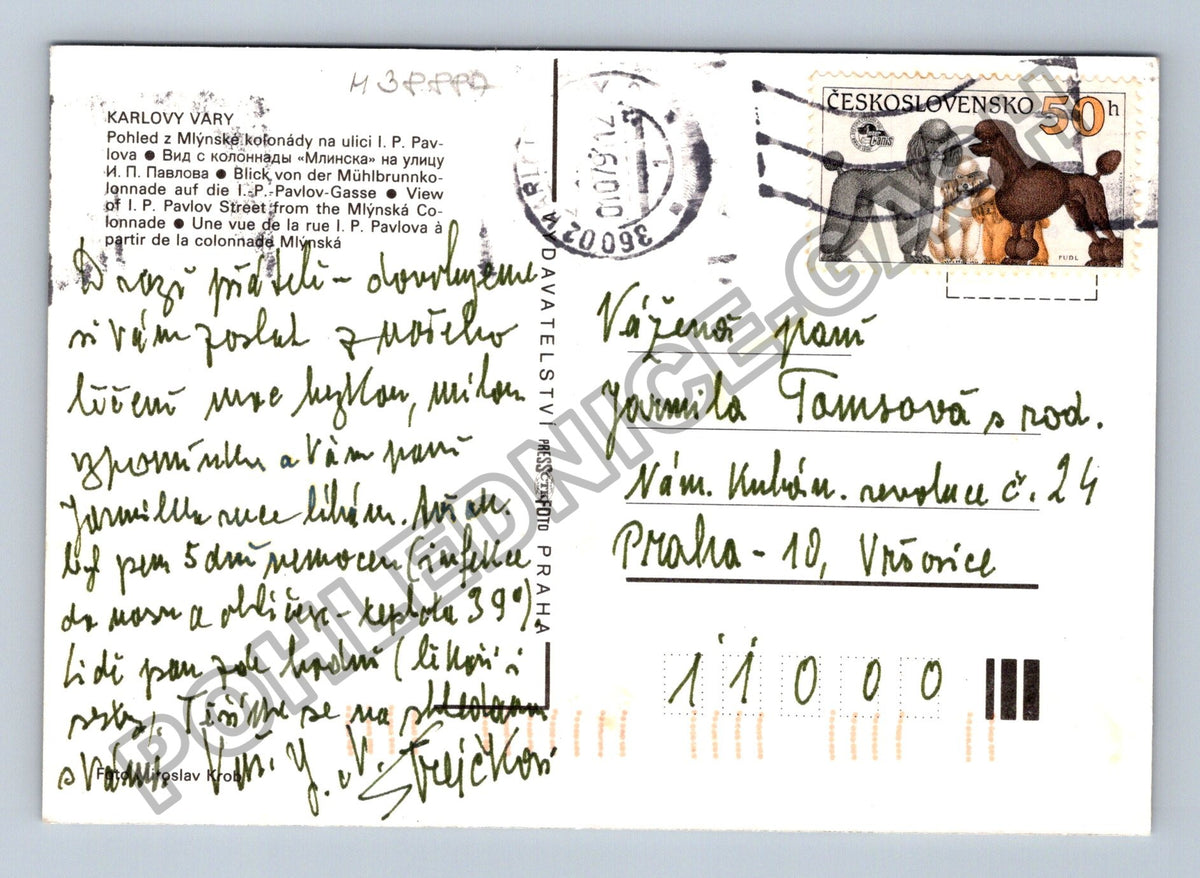 M 3PPP7
KARLOVY VARY
Pohled z Mlýnské kolonády na ulici I. P. Pav-
lova ● Вид с колоннады «Млинска» на улицу
И. П. Павлова ● Blick von der Mühlbrunnko-
lonnade auf die I.-P.-Pavlov-Gasse ● View
of I. P. Pavlov Street from the Mlýnská Co-
lonnade ● Une vue de la rue I. P. Pavlova à
partir de la colonnade Mlýnská
Drazí přátelé - dovolujeme
si Vám zaslat z našeho
léčení moc hezkou, milou
vzpomínku a Vám paní
Jarmilko ruce líbám.
byl jsem 5 dní nemocen (infekce
do nosu a obličeje - teplota 39°).
Lidé jsou zde hodní (lékaři i
sestry). Těšíme se na shledanou
s Vámi. Vaši J. a V. Strejčkovi
Foto Miroslav Krob
VYDAVATELSTVÍ PRESSFOTO PRAHA
36002
ČESKOSLOVENSKO 50h
PUDL
Vážená paní
Jarmila Tomsová s rod.
Nám. Kubán. revoluce č. 24
Praha - 10, Vršovice
11000
POHLEDNICE-GASH